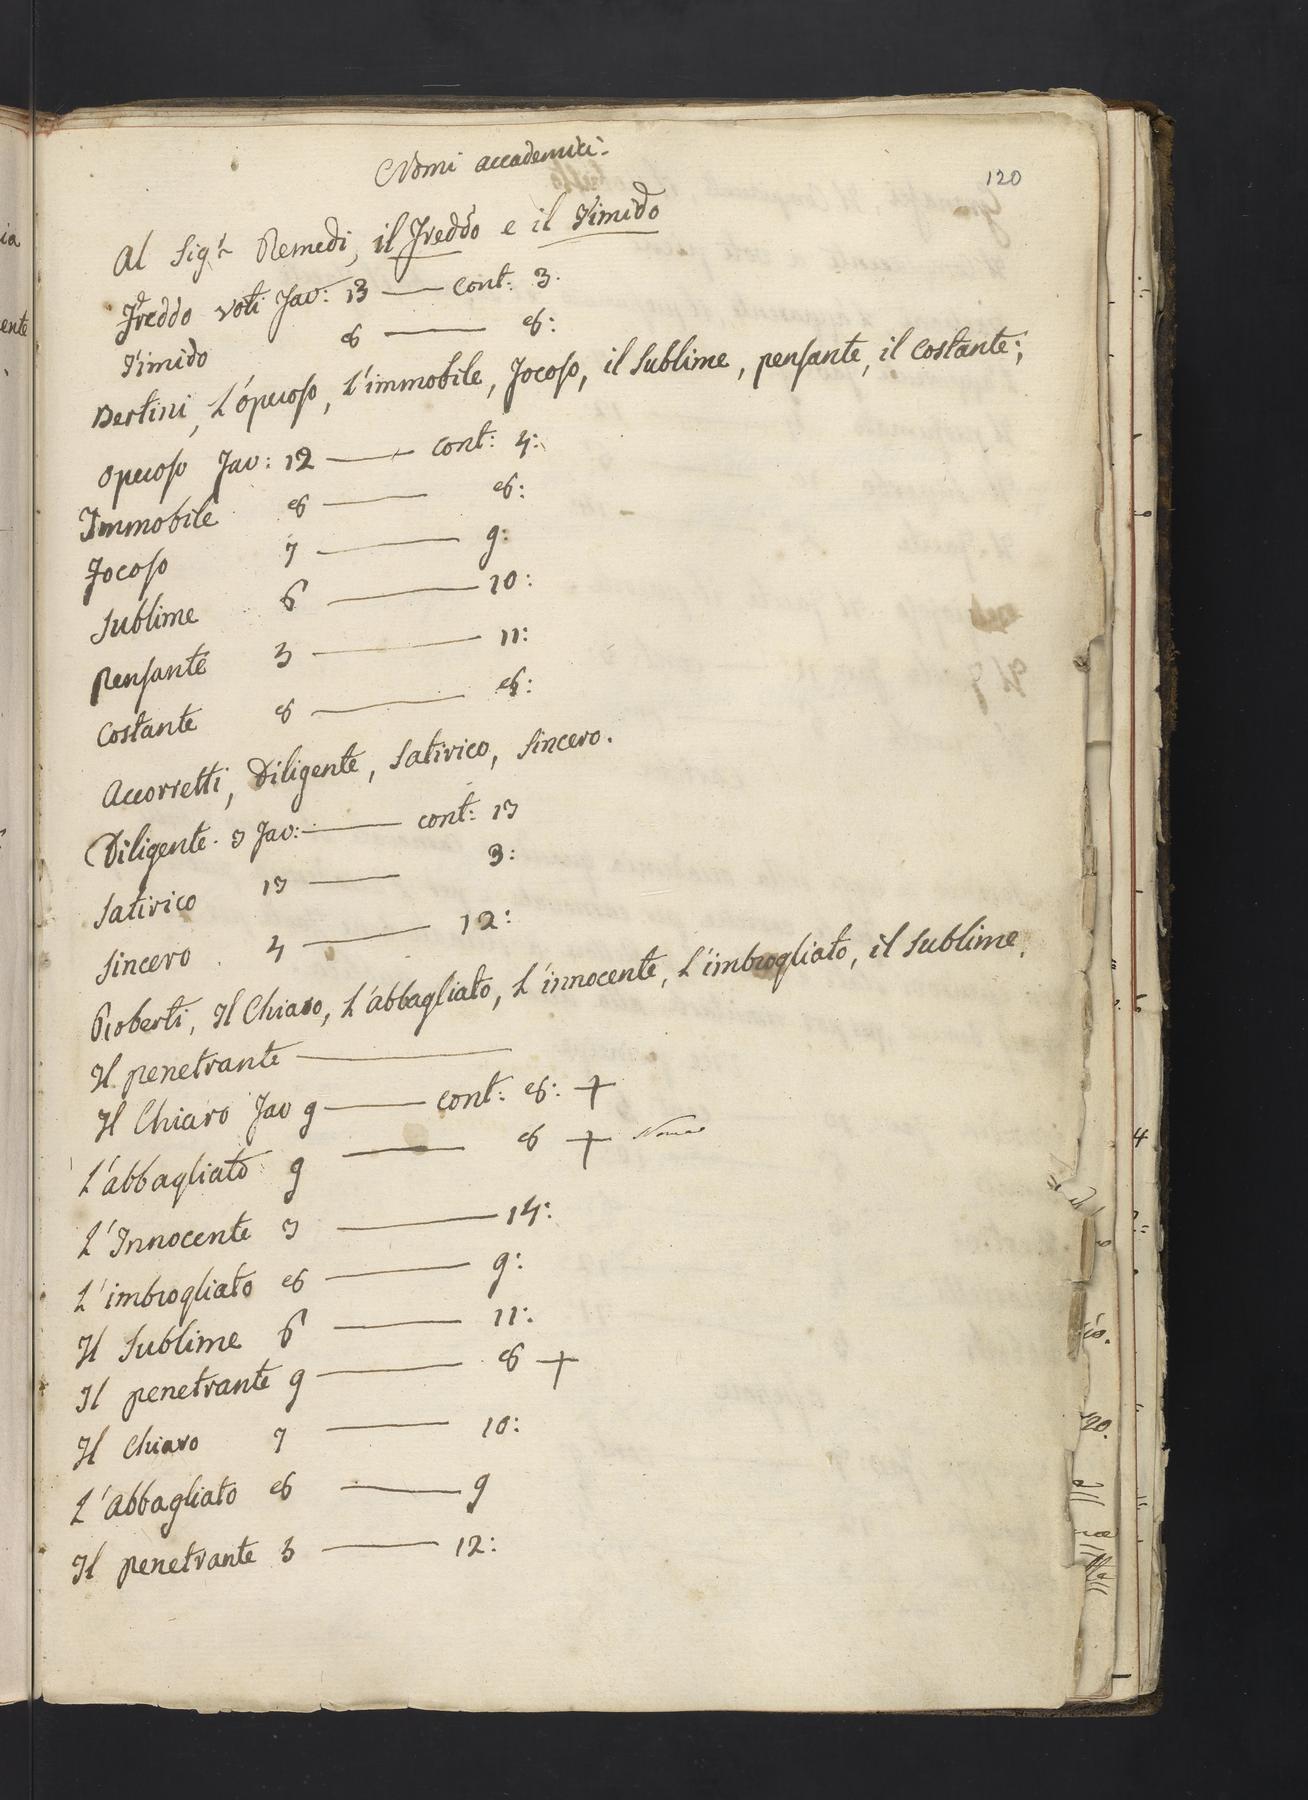 120
Nomi accademici.
Al Sig.r Remedi, il Freddo e il Timido
Freddo voti fav: 13 — cont: 3.
Timido 8 — 8:
Bertini, L'óperoso, L'immobile, Jocoso, il Sublime, pensante, il costante;
Operoso fav: 12 — cont: 4:
Immobile 8 — 8:
Jocoso 7 — 9:
Sublime 6 — 10:
Pensante 3 — 11:
Costante 8 — 8:
Accorretti, Diligente, Satirico, Sincero.
Diligente. 3 fav: — cont: 13
Satirico 13 — 3:
Sincero 4 — 12:
Roberti, Il Chiaro, L'abbagliato, L'innocente, L'imbrogliato, il Sublime,
Il penetrante —
Il Chiaro fav 9 — cont: 8: +
L'abbagliato 9 — 8 +
L'Innocente 3 — 14:
L'imbrogliato 8 — 9:
Il Sublime 6 — 11:
Il penetrante 9 — 8 +
Il Chiaro 7 — 10:
L'abbagliato 8 — 9
Il penetrante 3 — 12: